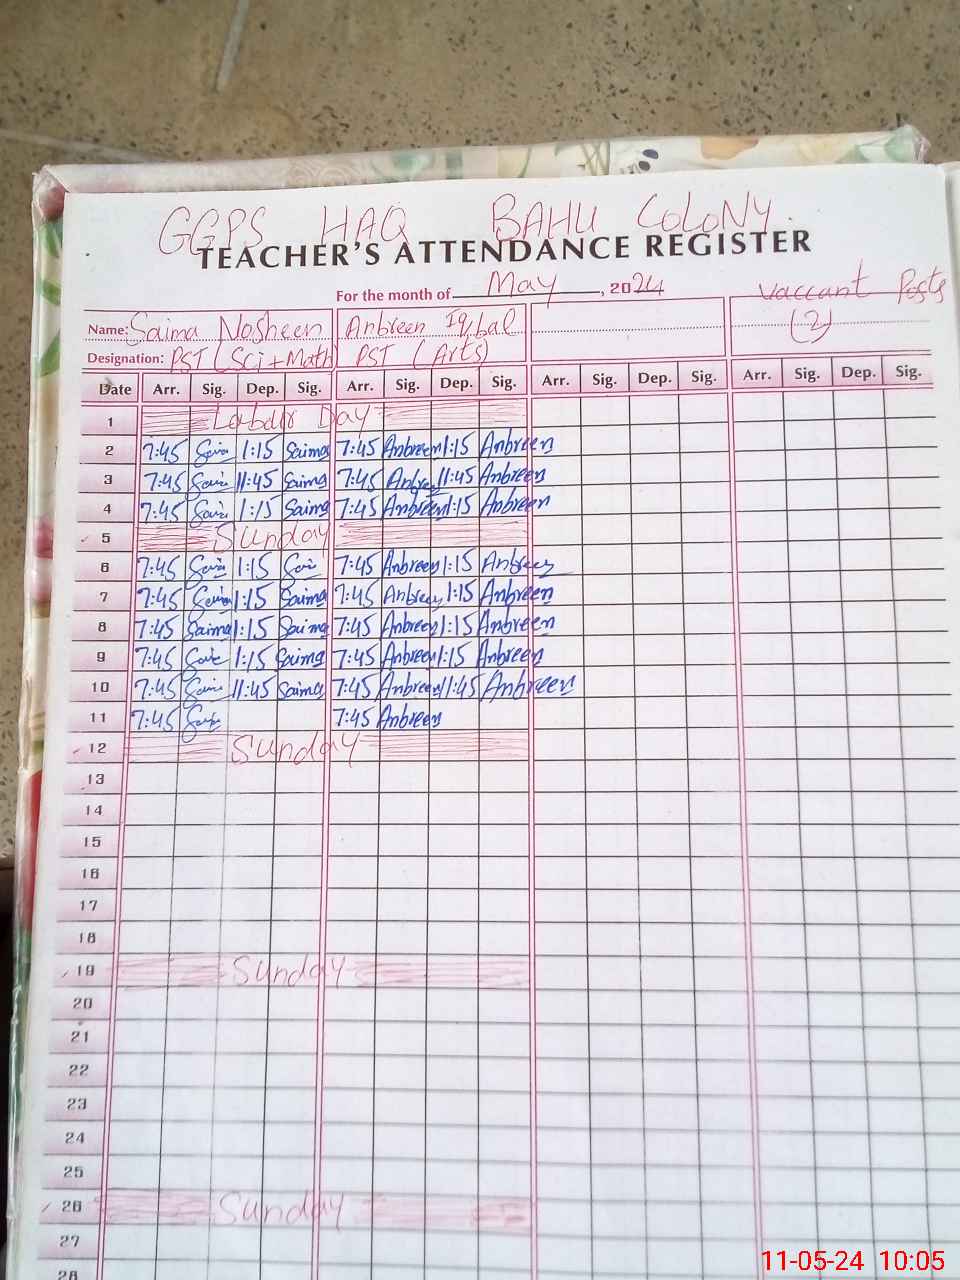 GGPS HAQ BAHU COLONY.
TEACHER'S ATTENDANCE REGISTER
For the month of May, 2024 Vaccant Posts
Name: Saima Nosheen Anbreen Iqbal (2)
Designation: PST (Sci+Math PST (Arts)
Date Arr. Sig. Dep. Sig. Arr. Sig. Dep. Sig. Arr. Sig. Dep. Sig. Arr. Sig. Dep. Sig.
1 Labour Day
2 7:45 Saima 1:15 Saima 7:45 Anbreen 1:15 Anbreen
3 7:45 Saima 11:45 Saima 7:45 Anbreen 11:45 Anbreen
4 7:45 Saima 1:15 Saima 7:45 Anbreen 1:15 Anbreen
5 Sunday
6 7:45 Saima 1:15 Saima 7:45 Anbreen 1:15 Anbreen
7 7:45 Saima 1:15 Saima 7:45 Anbreen 1:15 Anbreen
8 7:45 Saima 1:15 Saima 7:45 Anbreen 1:15 Anbreen
9 7:45 Saima 1:15 Saima 7:45 Anbreen 1:15 Anbreen
10 7:45 Saima 11:45 Saima 7:45 Anbreen 11:45 Anbreen
11 7:45 Saima 7:45 Anbreen
12 Sunday
13
14
15
16
17
18
19 Sunday
20
21
22
23
24
25
26 Sunday
27
28
11-05-24 10:05